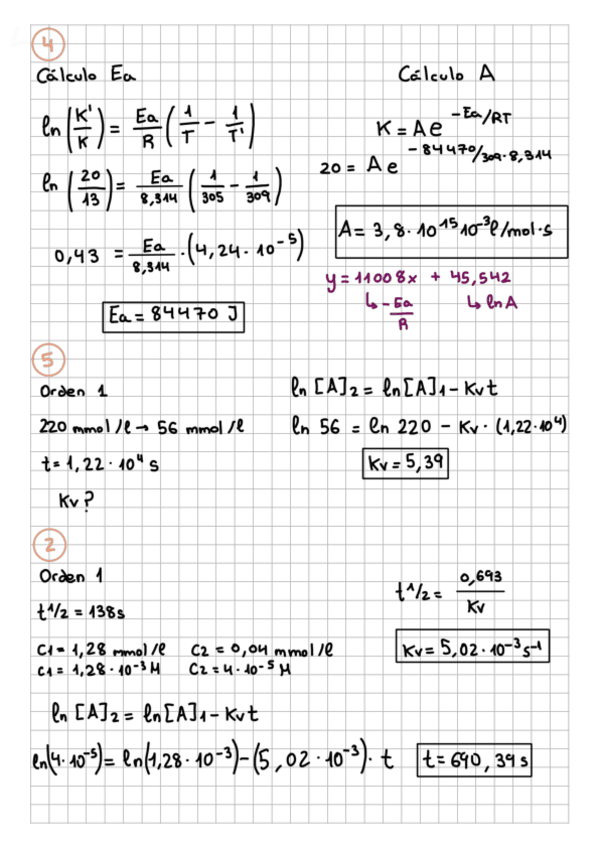 4
Cálculo Ea
ln(K'/K) = Ea/R (1/T - 1/T')
ln(20/13) = Ea/8,314 (1/305 - 1/309)
0,43 = Ea/8,314 · (4,24·10⁻⁵)
Ea = 84470 J
Cálculo A
K = Ae^(-Ea/RT)
20 = Ae^(-84470/309·8,314)
A = 3,8·10¹⁵ 10⁻³ l/mol·s
y = 11008x + 45,542
↳ -Ea/R ↳ ln A
5
Orden 1
220 mmol/l → 56 mmol/l
t = 1,22·10⁴ s
Kv?
ln [A]₂ = ln [A]₁ - Kvt
ln 56 = ln 220 - Kv · (1,22·10⁴)
Kv = 5,39
2
Orden 1
t1/2 = 138s
C1 = 1,28 mmol/l C2 = 0,04 mmol/l
C1 = 1,28·10⁻³ M C2 = 4·10⁻⁵ M
t1/2 = 0,693/Kv
Kv = 5,02·10⁻³ s⁻¹
ln [A]₂ = ln [A]₁ - Kvt
ln(4·10⁻⁵) = ln(1,28·10⁻³) - (5,02·10⁻³) · t
t = 690,39 s